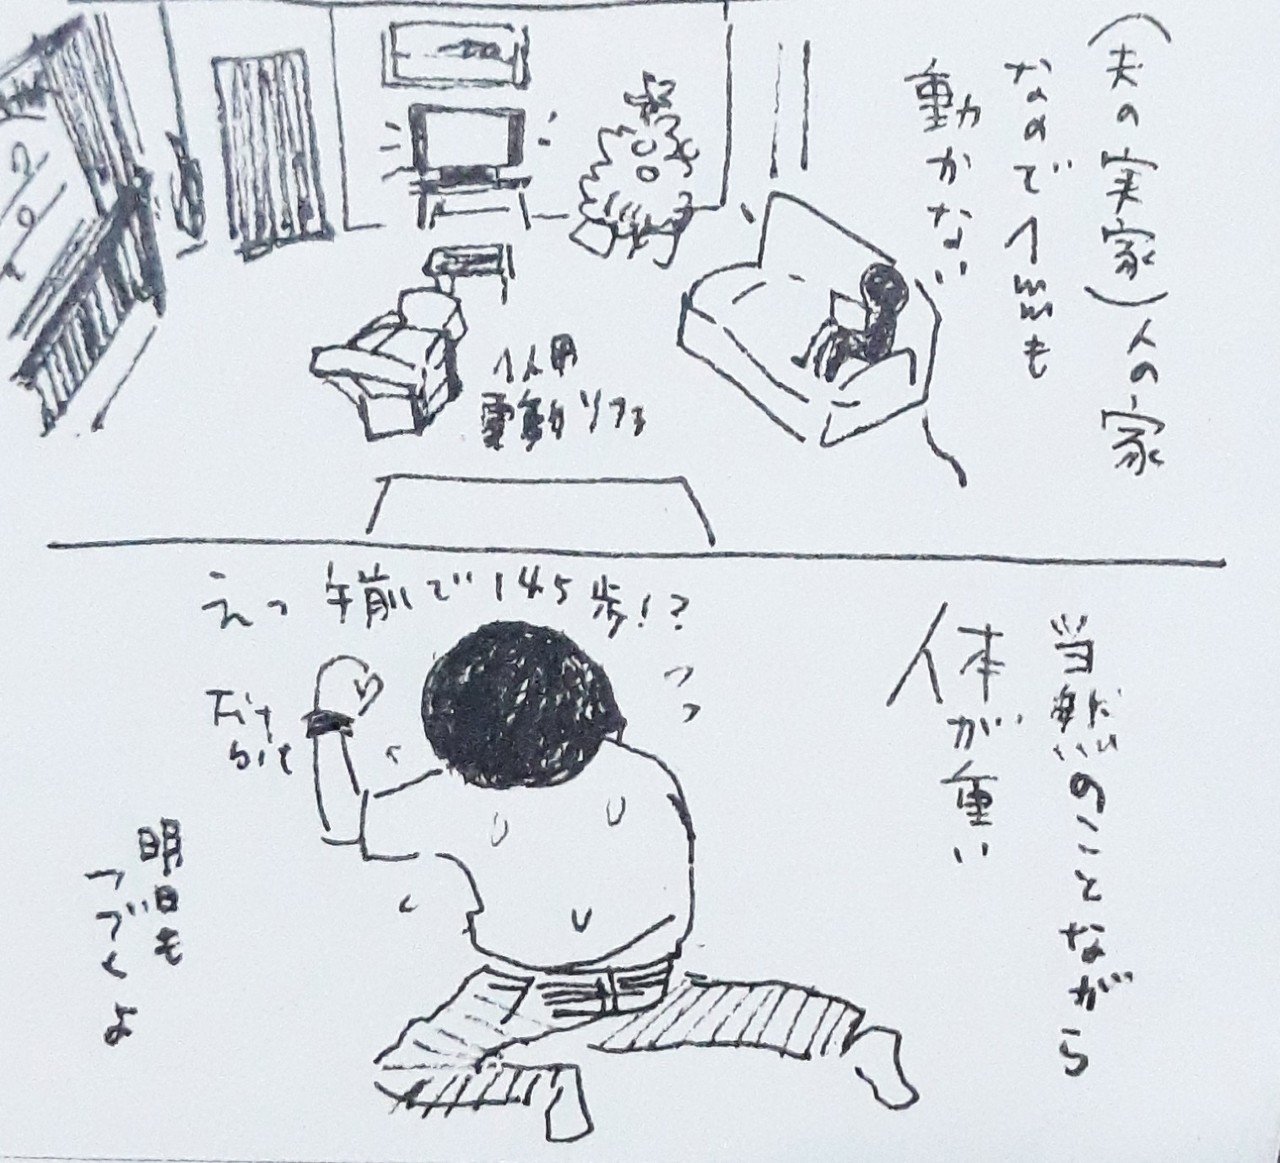 (夫の実家)人の家
なので1mmも
動かない
1人用
電動ソファ
当然のことながら
体が重い
えっ 午前で145歩!?
Fit
bit
明日も
つづくよ